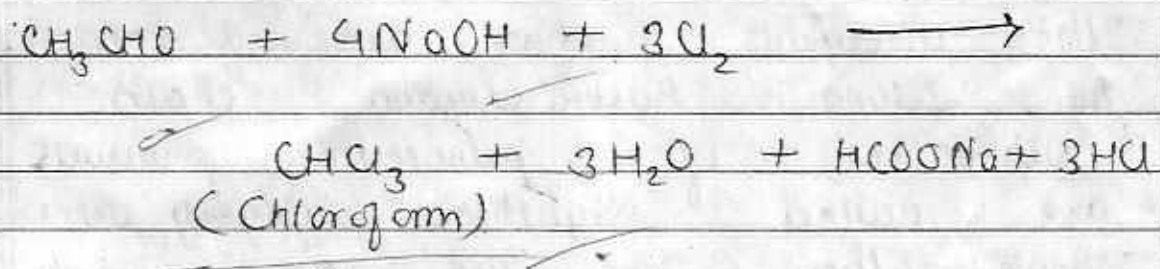 CH₃CHO + 4NaOH + 3Cl₂ ⟶
CHCl₃ + 3H₂O + HCOONa + 3HCl
(Chloroform)